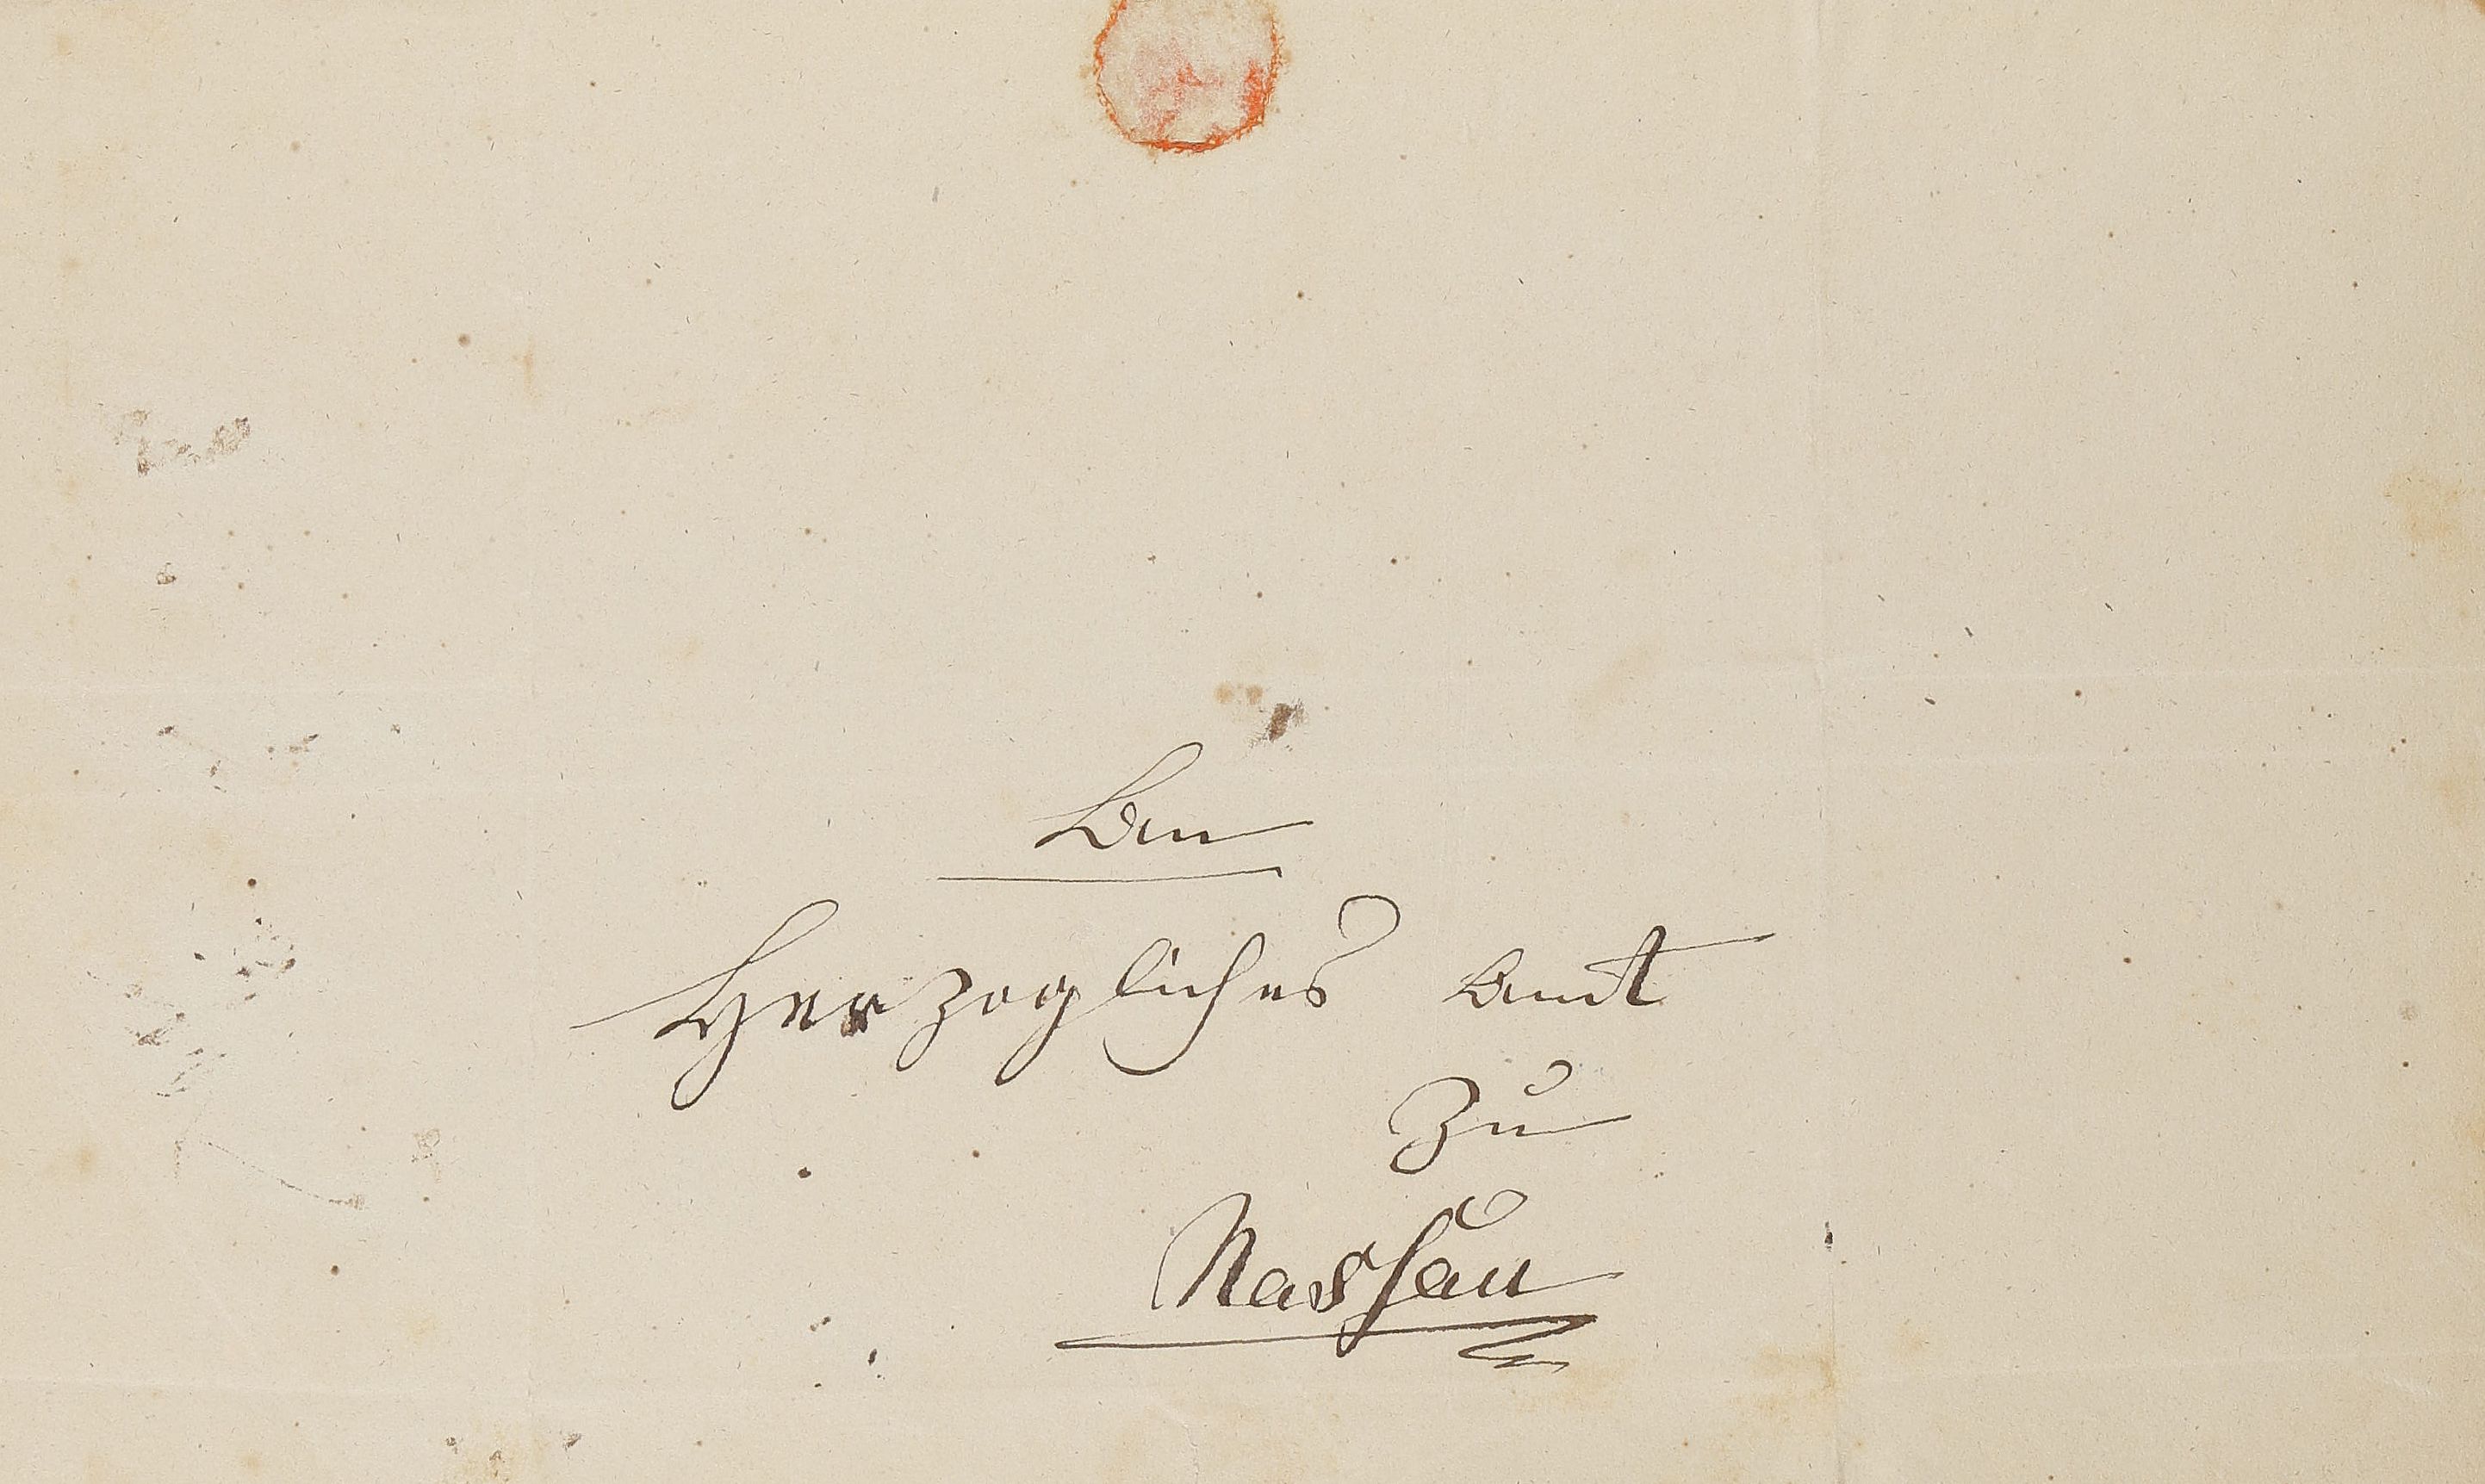 An
Herzogliches Amt
zu
Nassau